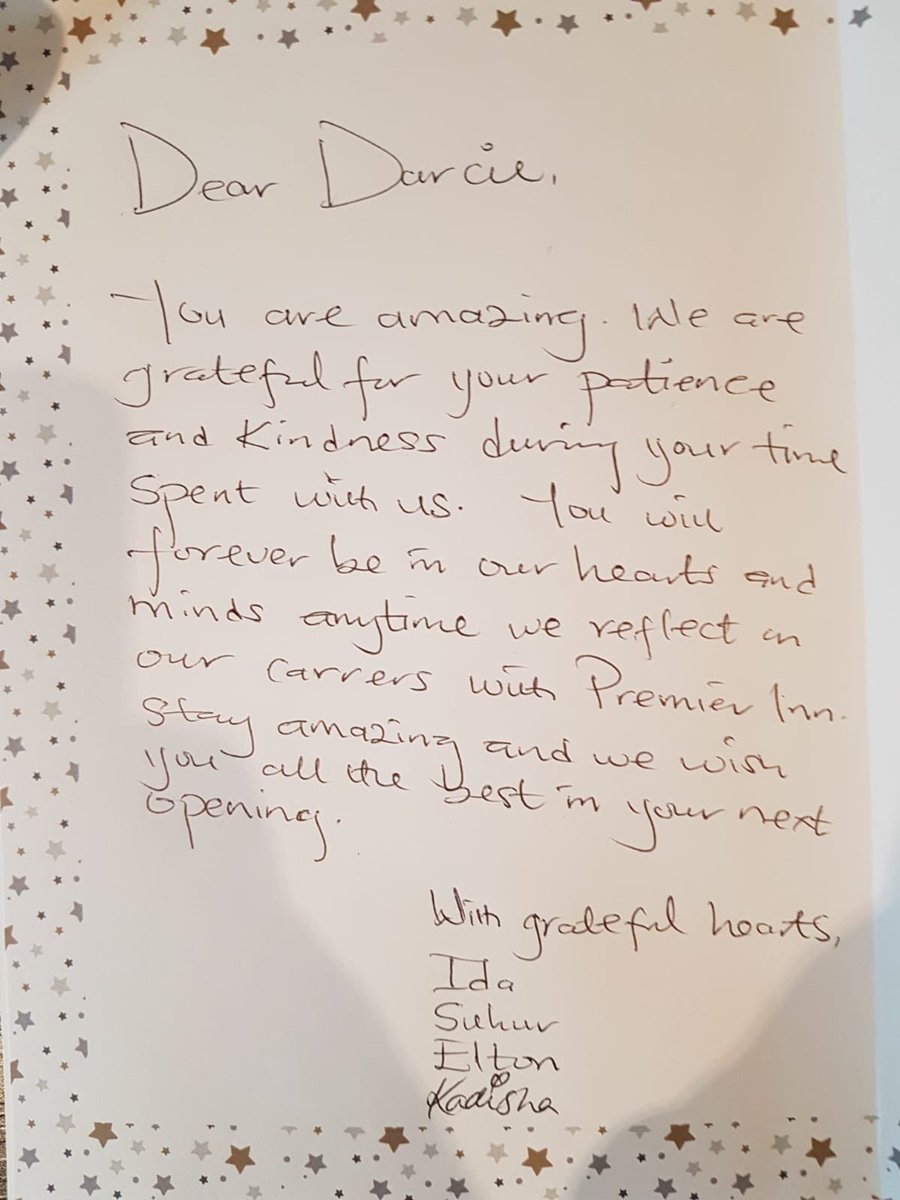 Dear Darcie,
You are amazing. We are
grateful for your patience
and Kindness during your time
Spent with us. You will
forever be in our hearts and
minds anytime we reflect on
our carrers with Premier Inn.
Stay amazing and we wish
you all the best in your next
opening.
With grateful hearts,
Ida
Suhur
Elton
Kadisha